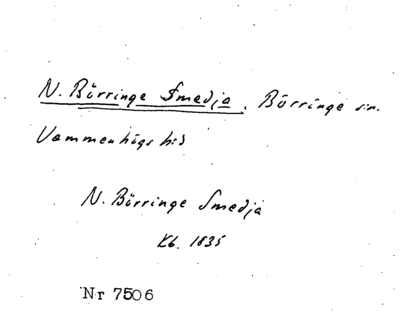 N. Börringe Smedja, Börringe sn.
Vemmenhögs hd
N. Börringe Smedja
Kb. 1835
Nr 7506